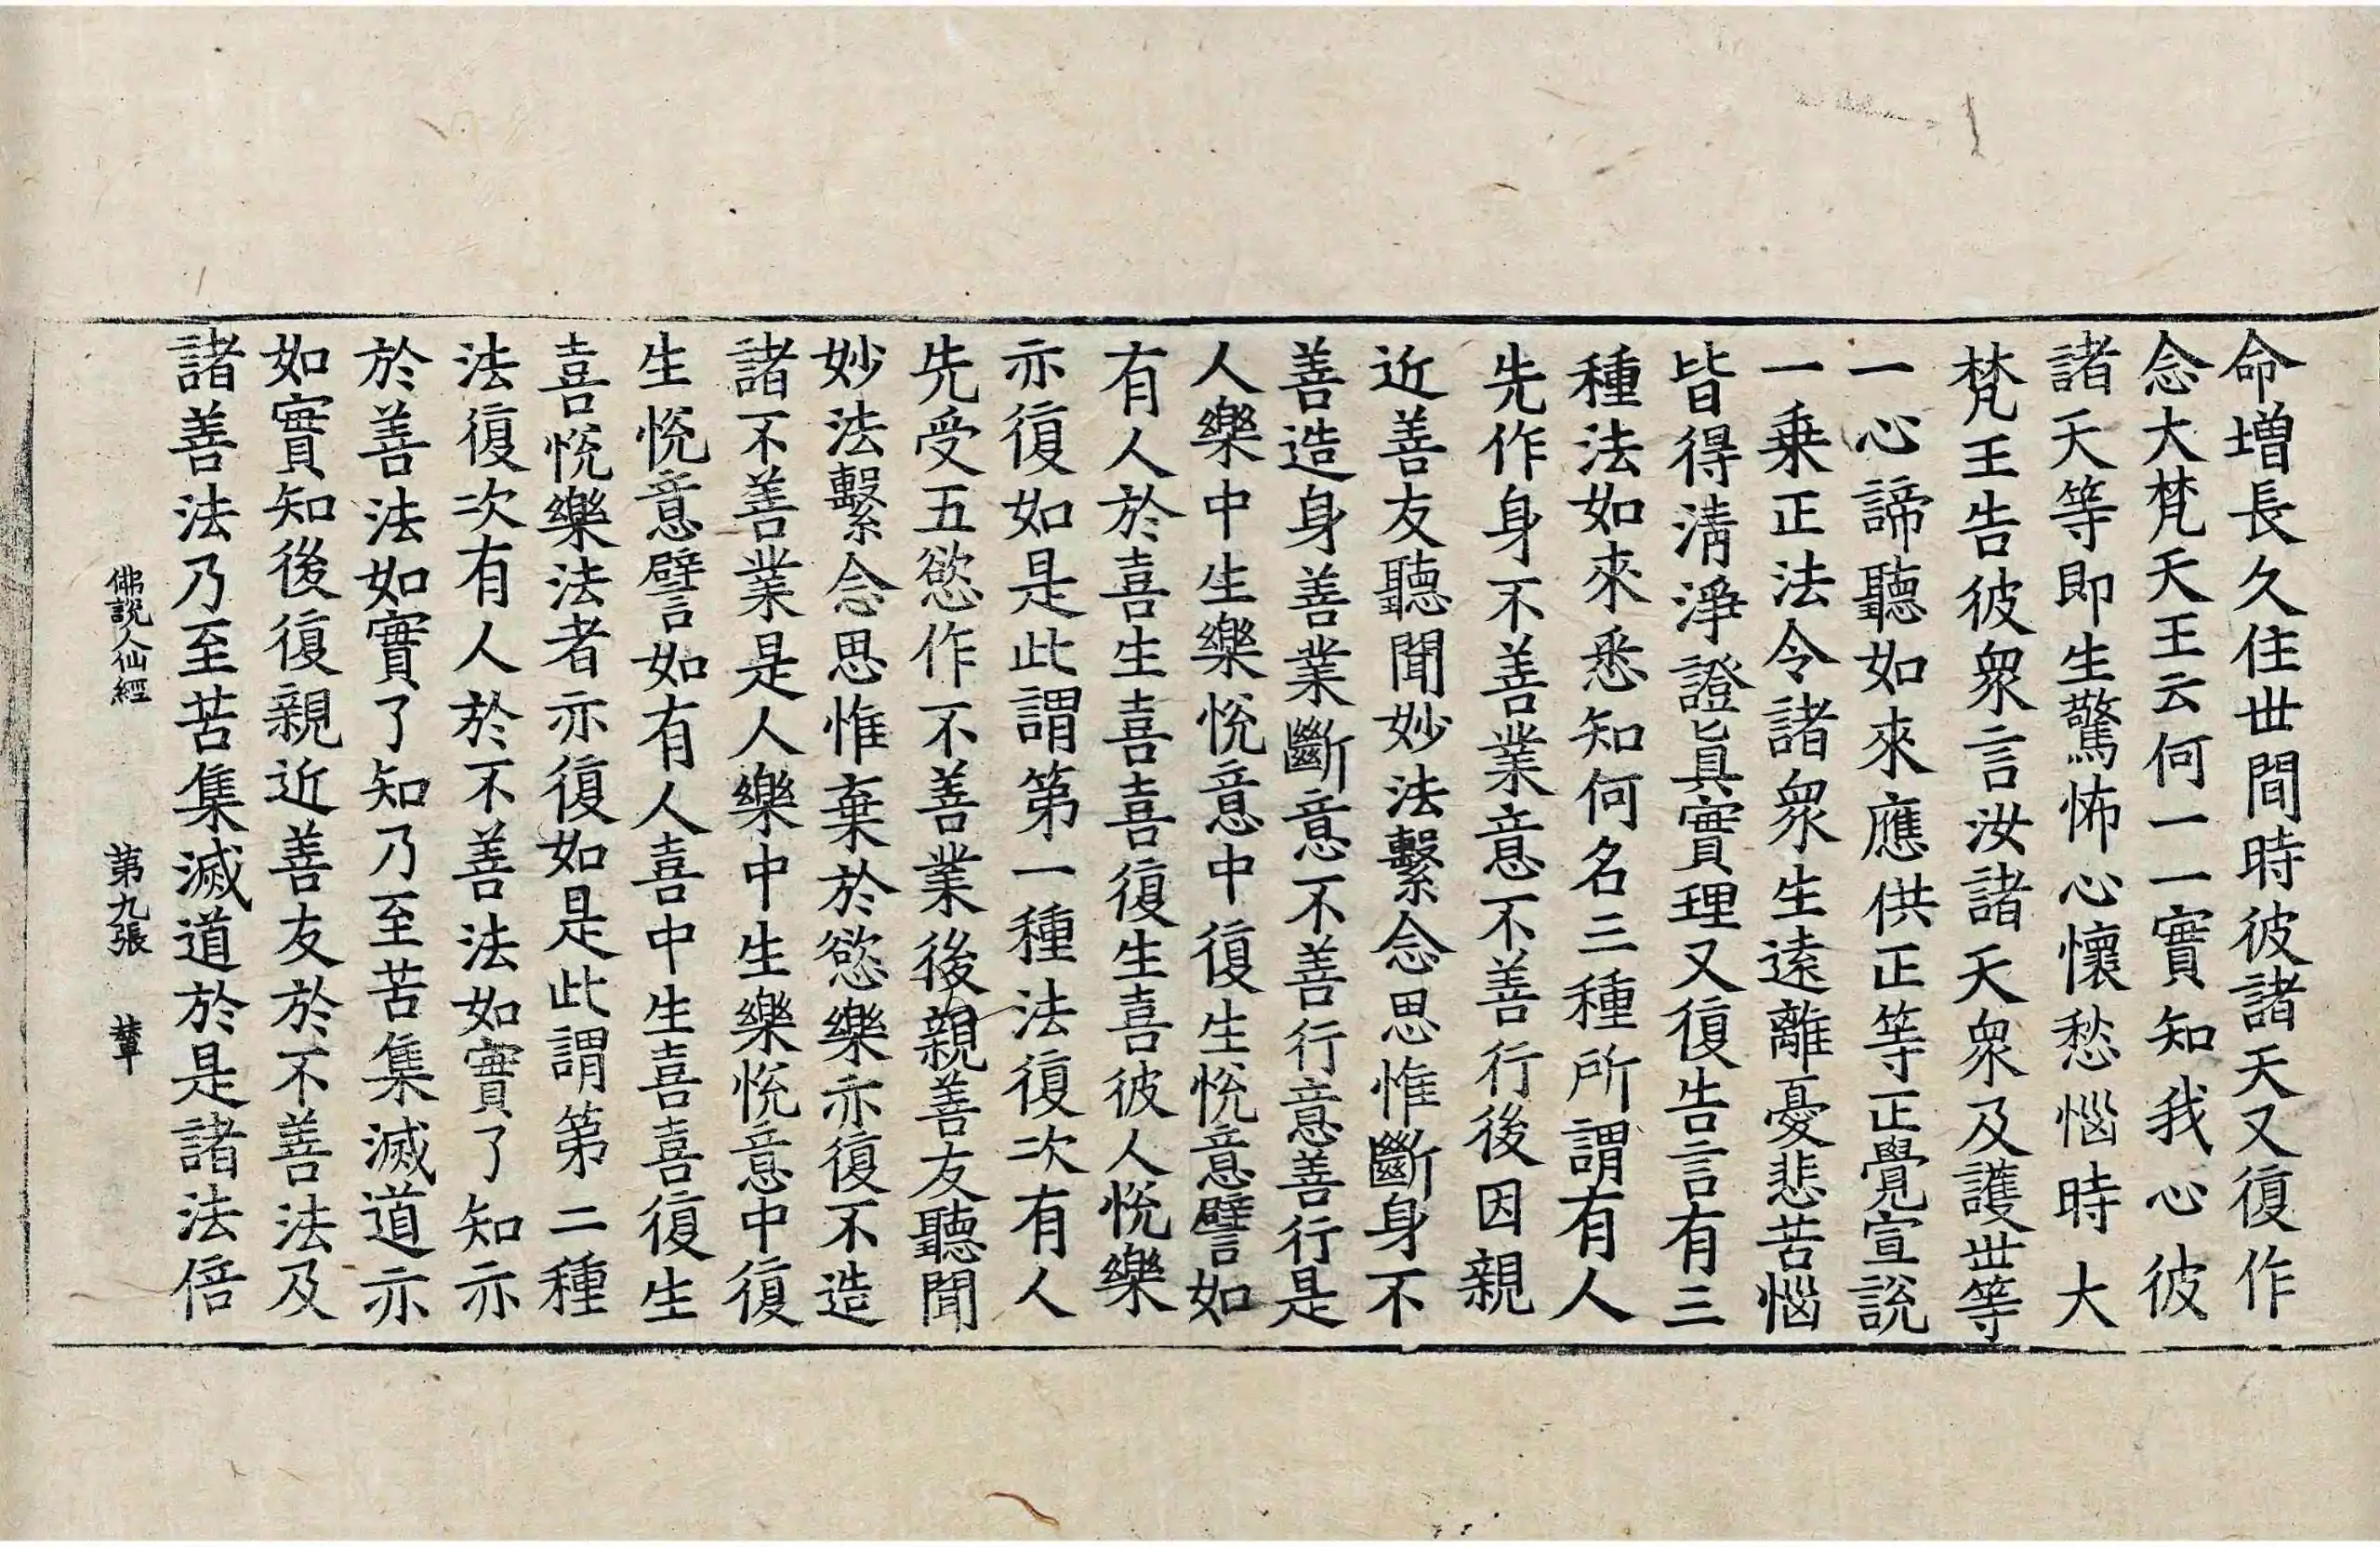 命增長久住世間時彼諸天又復作
念大梵天王云何一一實知我心彼
諸天等即生驚怖心懷愁惱時大
梵王告彼眾言汝諸天眾及護世等
一心諦聽如來應供正等正覺宣說
一乗正法令諸眾生遠離憂悲苦惱
皆得清淨證眞實理又復告言有三
種法如來悉知何名三種所謂有人
先作身不善業意不善行後因親
近善友聽聞妙法繫念思惟斷身不
善造身善業斷意不善行意善行是
人樂中生樂悅意中復生悅意譬如
有人於喜生喜喜復生喜彼人悅樂
亦復如是此謂第一種法復次有人
先受五慾作不善業後親善友聽聞
妙法繫念思惟棄於慾樂亦復不造
諸不善業是人樂中生樂悅意中復
生悅意譬如有人喜中生喜喜復生
喜悅樂法者亦復如是此謂第二種
法復次有人於不善法如實了知亦
於善法如實了知乃至苦集滅道亦
如實知後復親近善友於不善法及
諸善法乃至苦集滅道於是諸法倍
佛說人仙經 第九張 輦